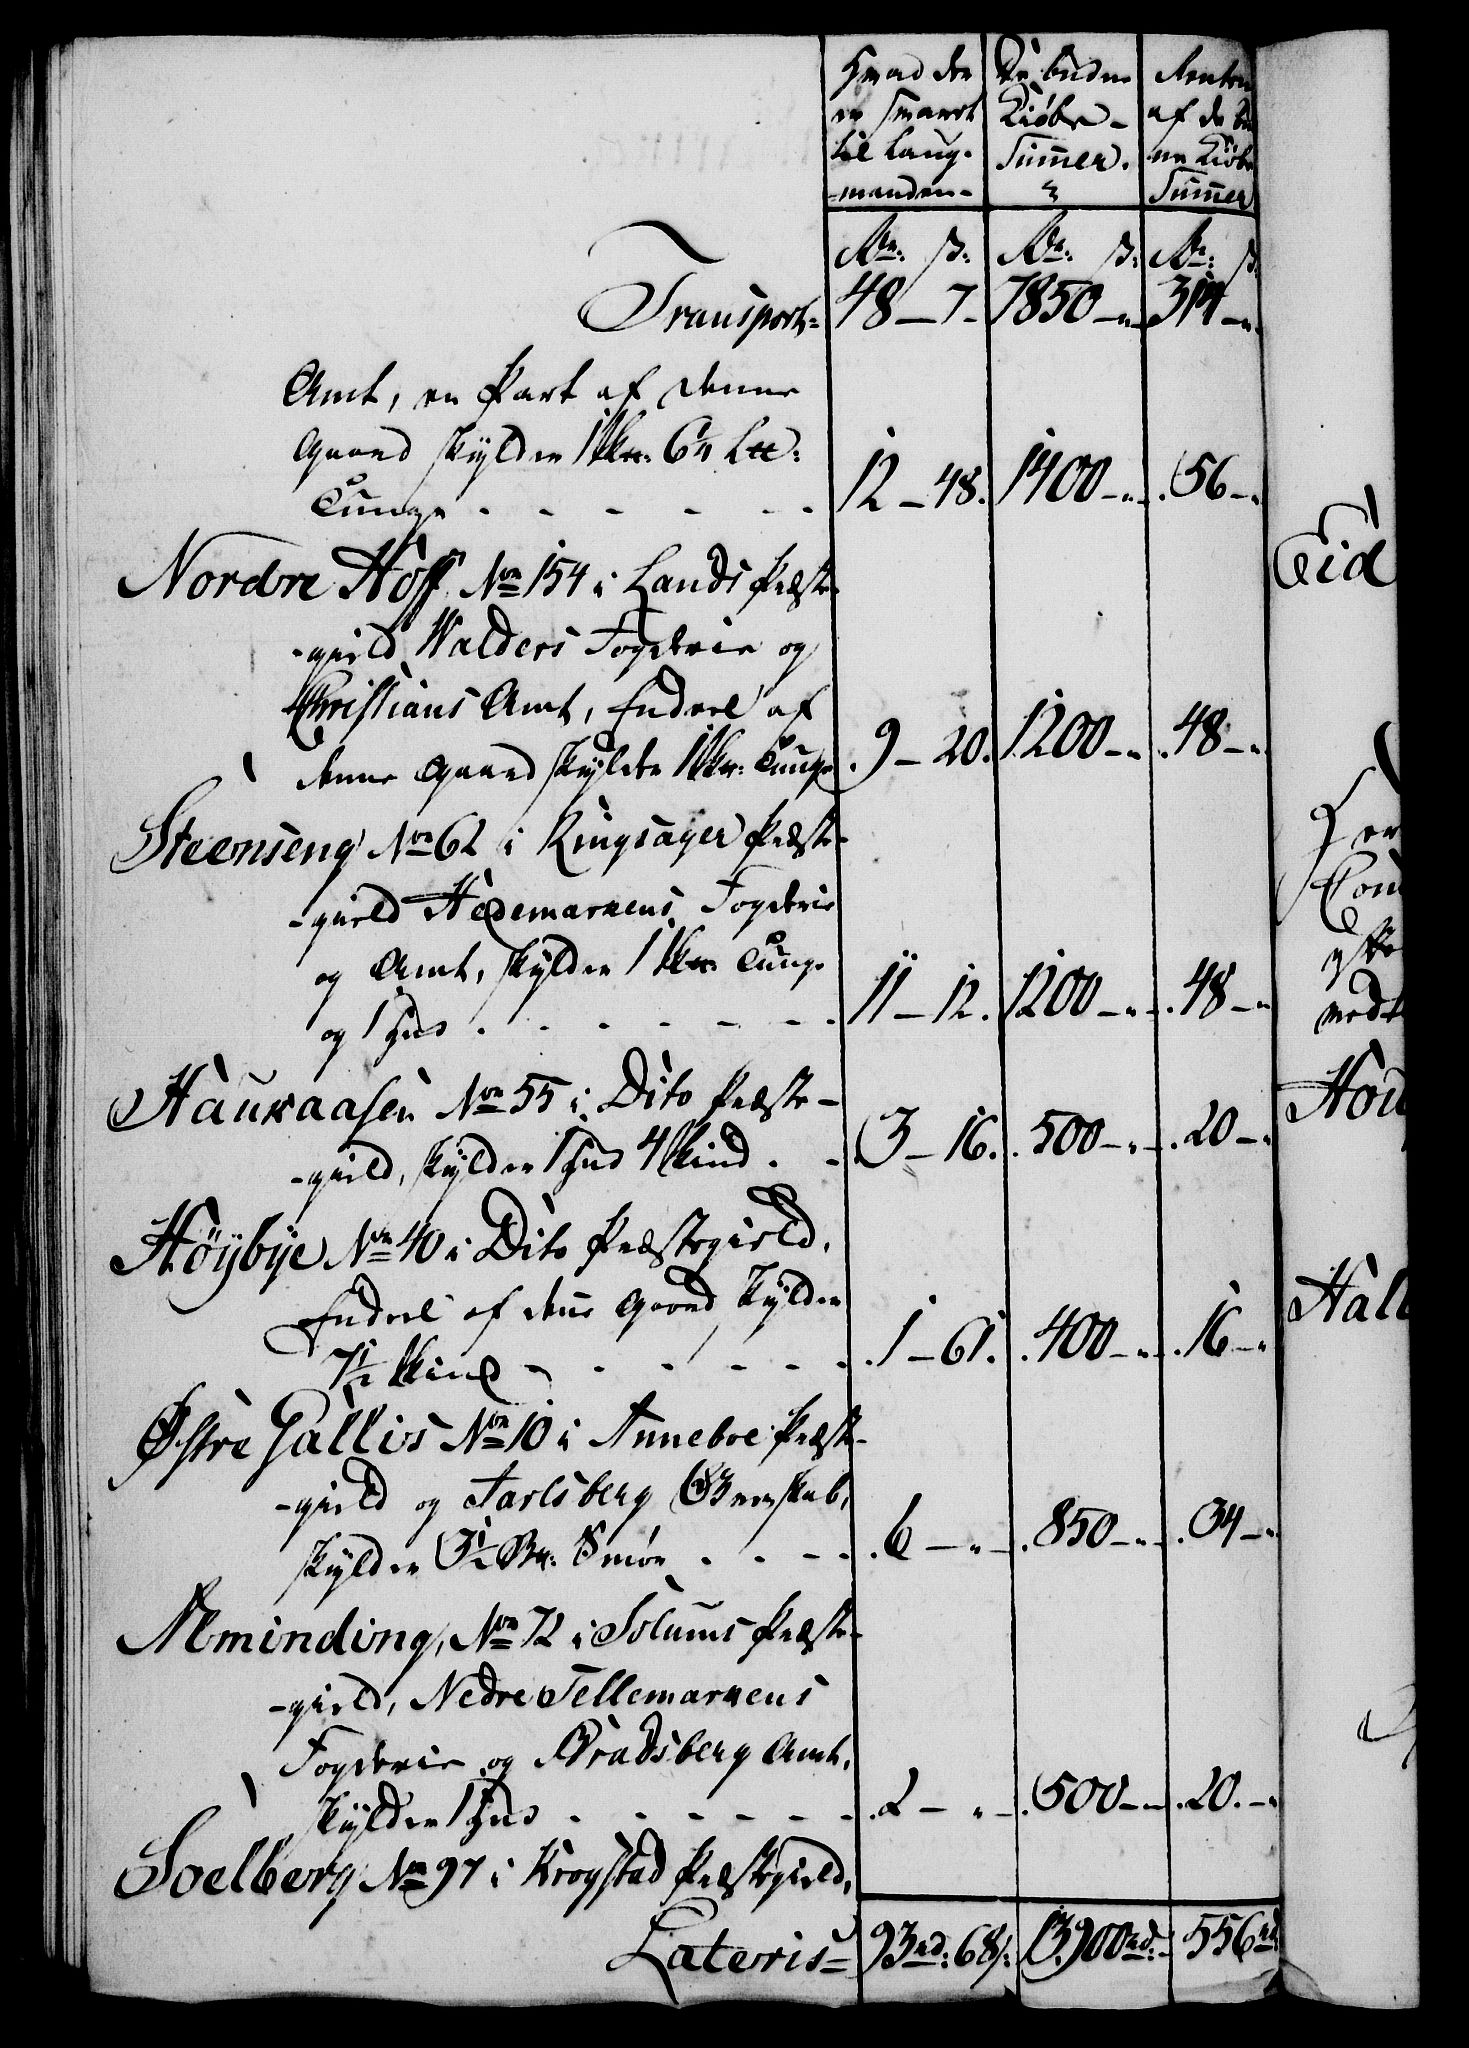 Hvad der | De budne | Renten
er svaret | Kiøbe- | af de bud
til Laug- | Summer. | ne Kiøbe
-manden- | | Summer
Rdr: s: | Rdr: s: | Rdr: s:
Transport= 48 – 7 – 7850 –„– 314 –„
Amt, en Part af denne
Gaard skylder 1 Skn: 6 ½ Ltt:
Tunge - - - - - - 12 – 48. 1400 –„– 56 –„
Nordre Hoff No 154 i Lands Præste-
-gield Walders Fogderie og
Christians Amt, Endeel af
denne Gaard skylder 1 Skn: Tunge 9 – 20. 1200 –„ 48 –„
Steenseng No 62 i Ringsager Præste-
-gield Hedemarkens Fogderie
og Amt, skylder 1 Skn: Tunge
og 1 Hud - - - - - - - 11 – 12. 1200 –„– 48 –„
Haukaasen No 55 i Dito Præste-
-gield, skylder 1 Hud 4 Skind - - 3 – 16. 500 –„– 20 –„
Höÿbÿe No 40 i Dito Præstegield,
Endeel af denne Gaard skylder
7½ Skind - - - - - - 1 – 61. 400 –„– 16 –„
Østre Gallis No 10 i Anneboe Præste-
-gield og Jarlsberg Grevskab,
skylder 3½ Bn: Smör - - - - 6 –„– 850 –„– 34 –„
Alminding, No 72 i Solums Præste-
-gield, Nedre Tellemarkens
Fogderie og Bradsberg Amt,
skylder 1 Hud - - - - - - 2 – „ – 500 –„– 20. –„
Soelberg No 97 i Krogstad Præstegield,
Lateris= 93 rd: 68 s: 13900 rd: – 556 rd:
Eid
Hall